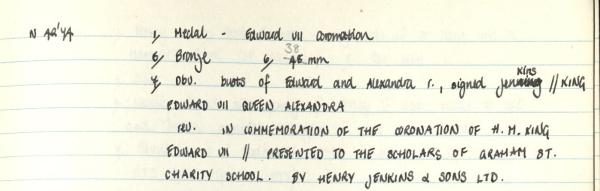 N 42'44 1, Medal - Edward VII coronation
5, Bronze 6, 38 45 mm
7, Obv. busts of Edward and Alexandra r., signed Jenkins // KING
EDWARD VII QUEEN ALEXANDRA
rev. IN COMMEMORATION OF THE CORONATION OF H.M. KING
EDWARD VII // PRESENTED TO THE SCHOLARS OF GRAHAM ST.
CHARITY SCHOOL. BY HENRY JENKINS & SONS LTD.